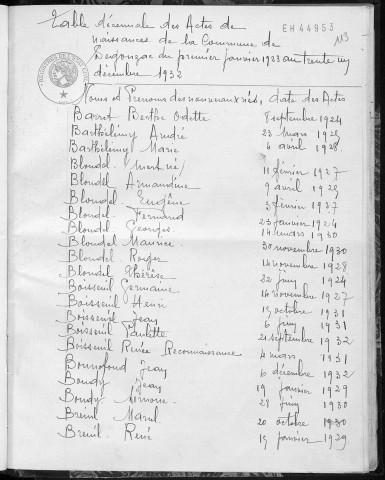 Table décennale des Actes de
EH 44953
113
naissances de la Commune de
du premier janvier 1923 au trente un
décembre 1932
Noms et Prénoms des nouveaux nés, date des Actes
Barrot Berthe Odette 8 septembre 1924
Barthélémy André 23 mars 1925
Barthélémy Marie 6 avril 1928
Blondel (mort né) 11 février 1927
Blondel Armandine 9 avril 1929
Blondel Eugène 3 février 1927
Blondel Fernand 23 janvier 1924
Blondel Georges 14 mars 1930
Blondel Maurice 30 novembre 1930
Blondel Roger 14 novembre 1928
Blondel Thérèse 22 juin 1924
Boisseuil Germaine 14 novembre 1927
Boisseuil Henri 15 octobre 1931
Boisseuil Jean 6 juin 1931
Boisseuil Paulette 21 septembre 1932
Boisseuil Renée Reconnaissance 4 mars 1931
Bonnefond Jean 6 décembre 1932
Boudy Jean 19 janvier 1929
Boudy Simone 28 juin 1930
Breuil Marcel 20 octobre 1930
Breuil René 15 janvier 1929